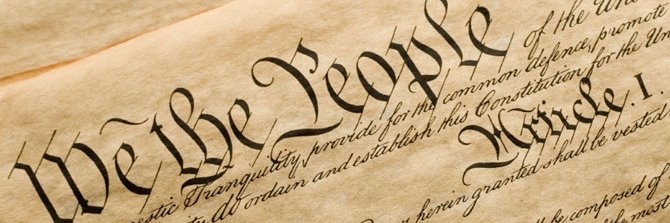 We the People of the Un
estic Tranquility, provide for the common defence, promote
ordain and establish this Constitution for the Un
Article. I.
herein granted shall be vested
be composed of
the most